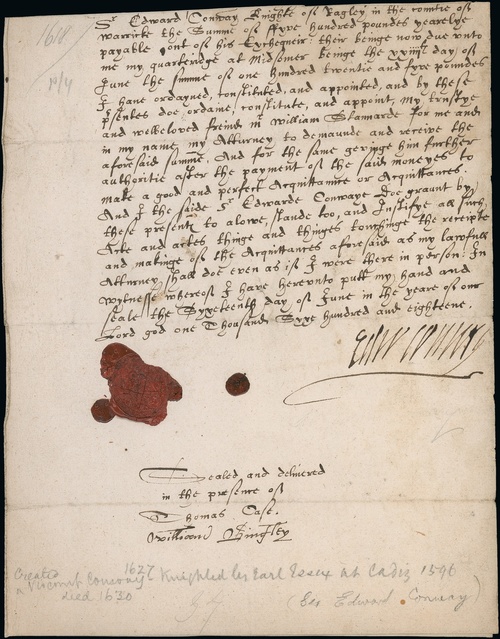 Sr Edward Conway Knighte of Ragley in the comtie of
warricke the Summe of ffyve hundred poundes yearelye
payable out of his Exchequir: their beinge now due vnto
me my quarteridge at Midsomer beinge the xxiiijth day of
June the summe of one hundred twentie and fyve poundes
I have ordayned, constituted, and appointed, and by these
presentes doe ordaine, constitute, and appoint, my trustye
and welbeloved freind mr William Stannarde for me and
in my name my Atturney to demaunde and receive the
aforesaid summe. And for the same geivinge him further
authoritie after the payment of the said moneyes to
make a good and perfect Acquittance or Acquittances.
And I the saide Sr Edwarde Conwaye Doe graunt by
these presents to alowe, stande too, and Justifye all such
Acte and actes thinge and thinges touchinge the receipte
and makinge of the Acquittances aforesaid as my lawfull
Atturney shall doe even as if I were there in person: In
wytnesse whereof I have hereunto putt my hand and
seale the Syxteenth day of June in the yeare of our
Lord god one Thousand Syxe hundred and eighteene.
1618
Edw Conway
Sealed and delivered
in the presence of
Thomas Case.
William Bingley
Created 1627
Viscount Conway Knighted by Earl Essex at Cadiz 1596
died 1630
(Sir Edward Conway)